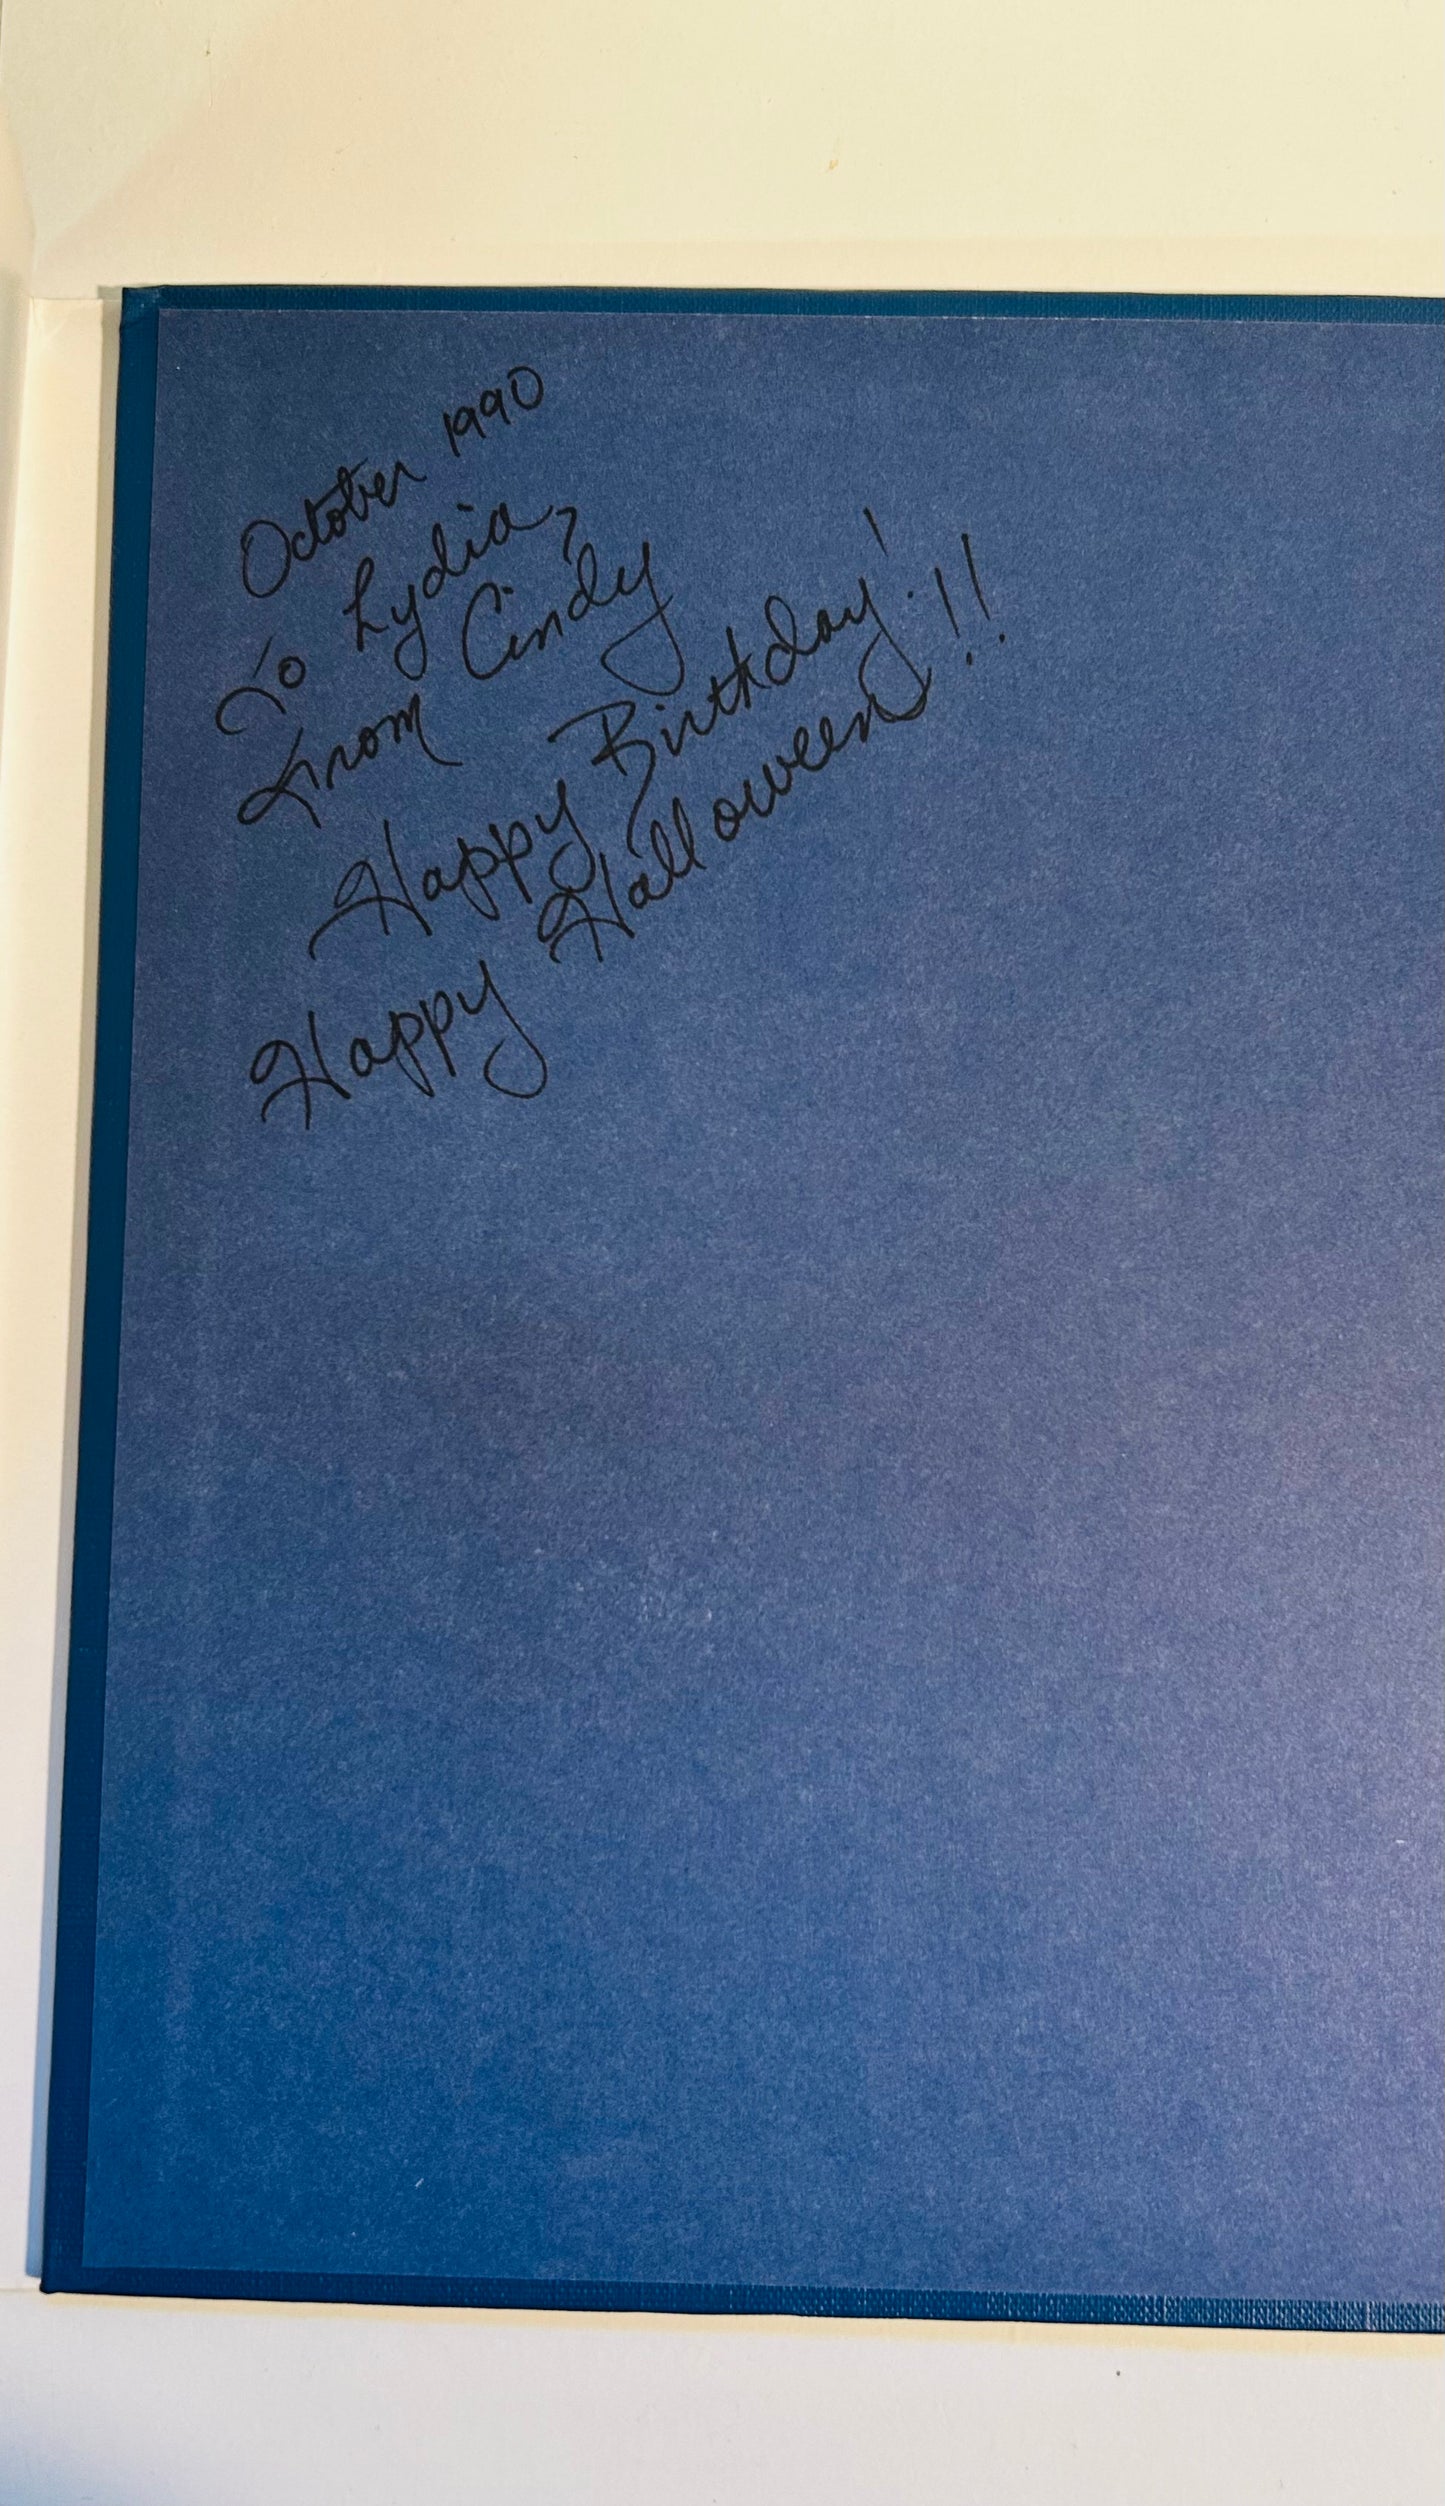 October 1990
To Lydia,
From Cindy
Happy Birthday!
Happy Halloween!!